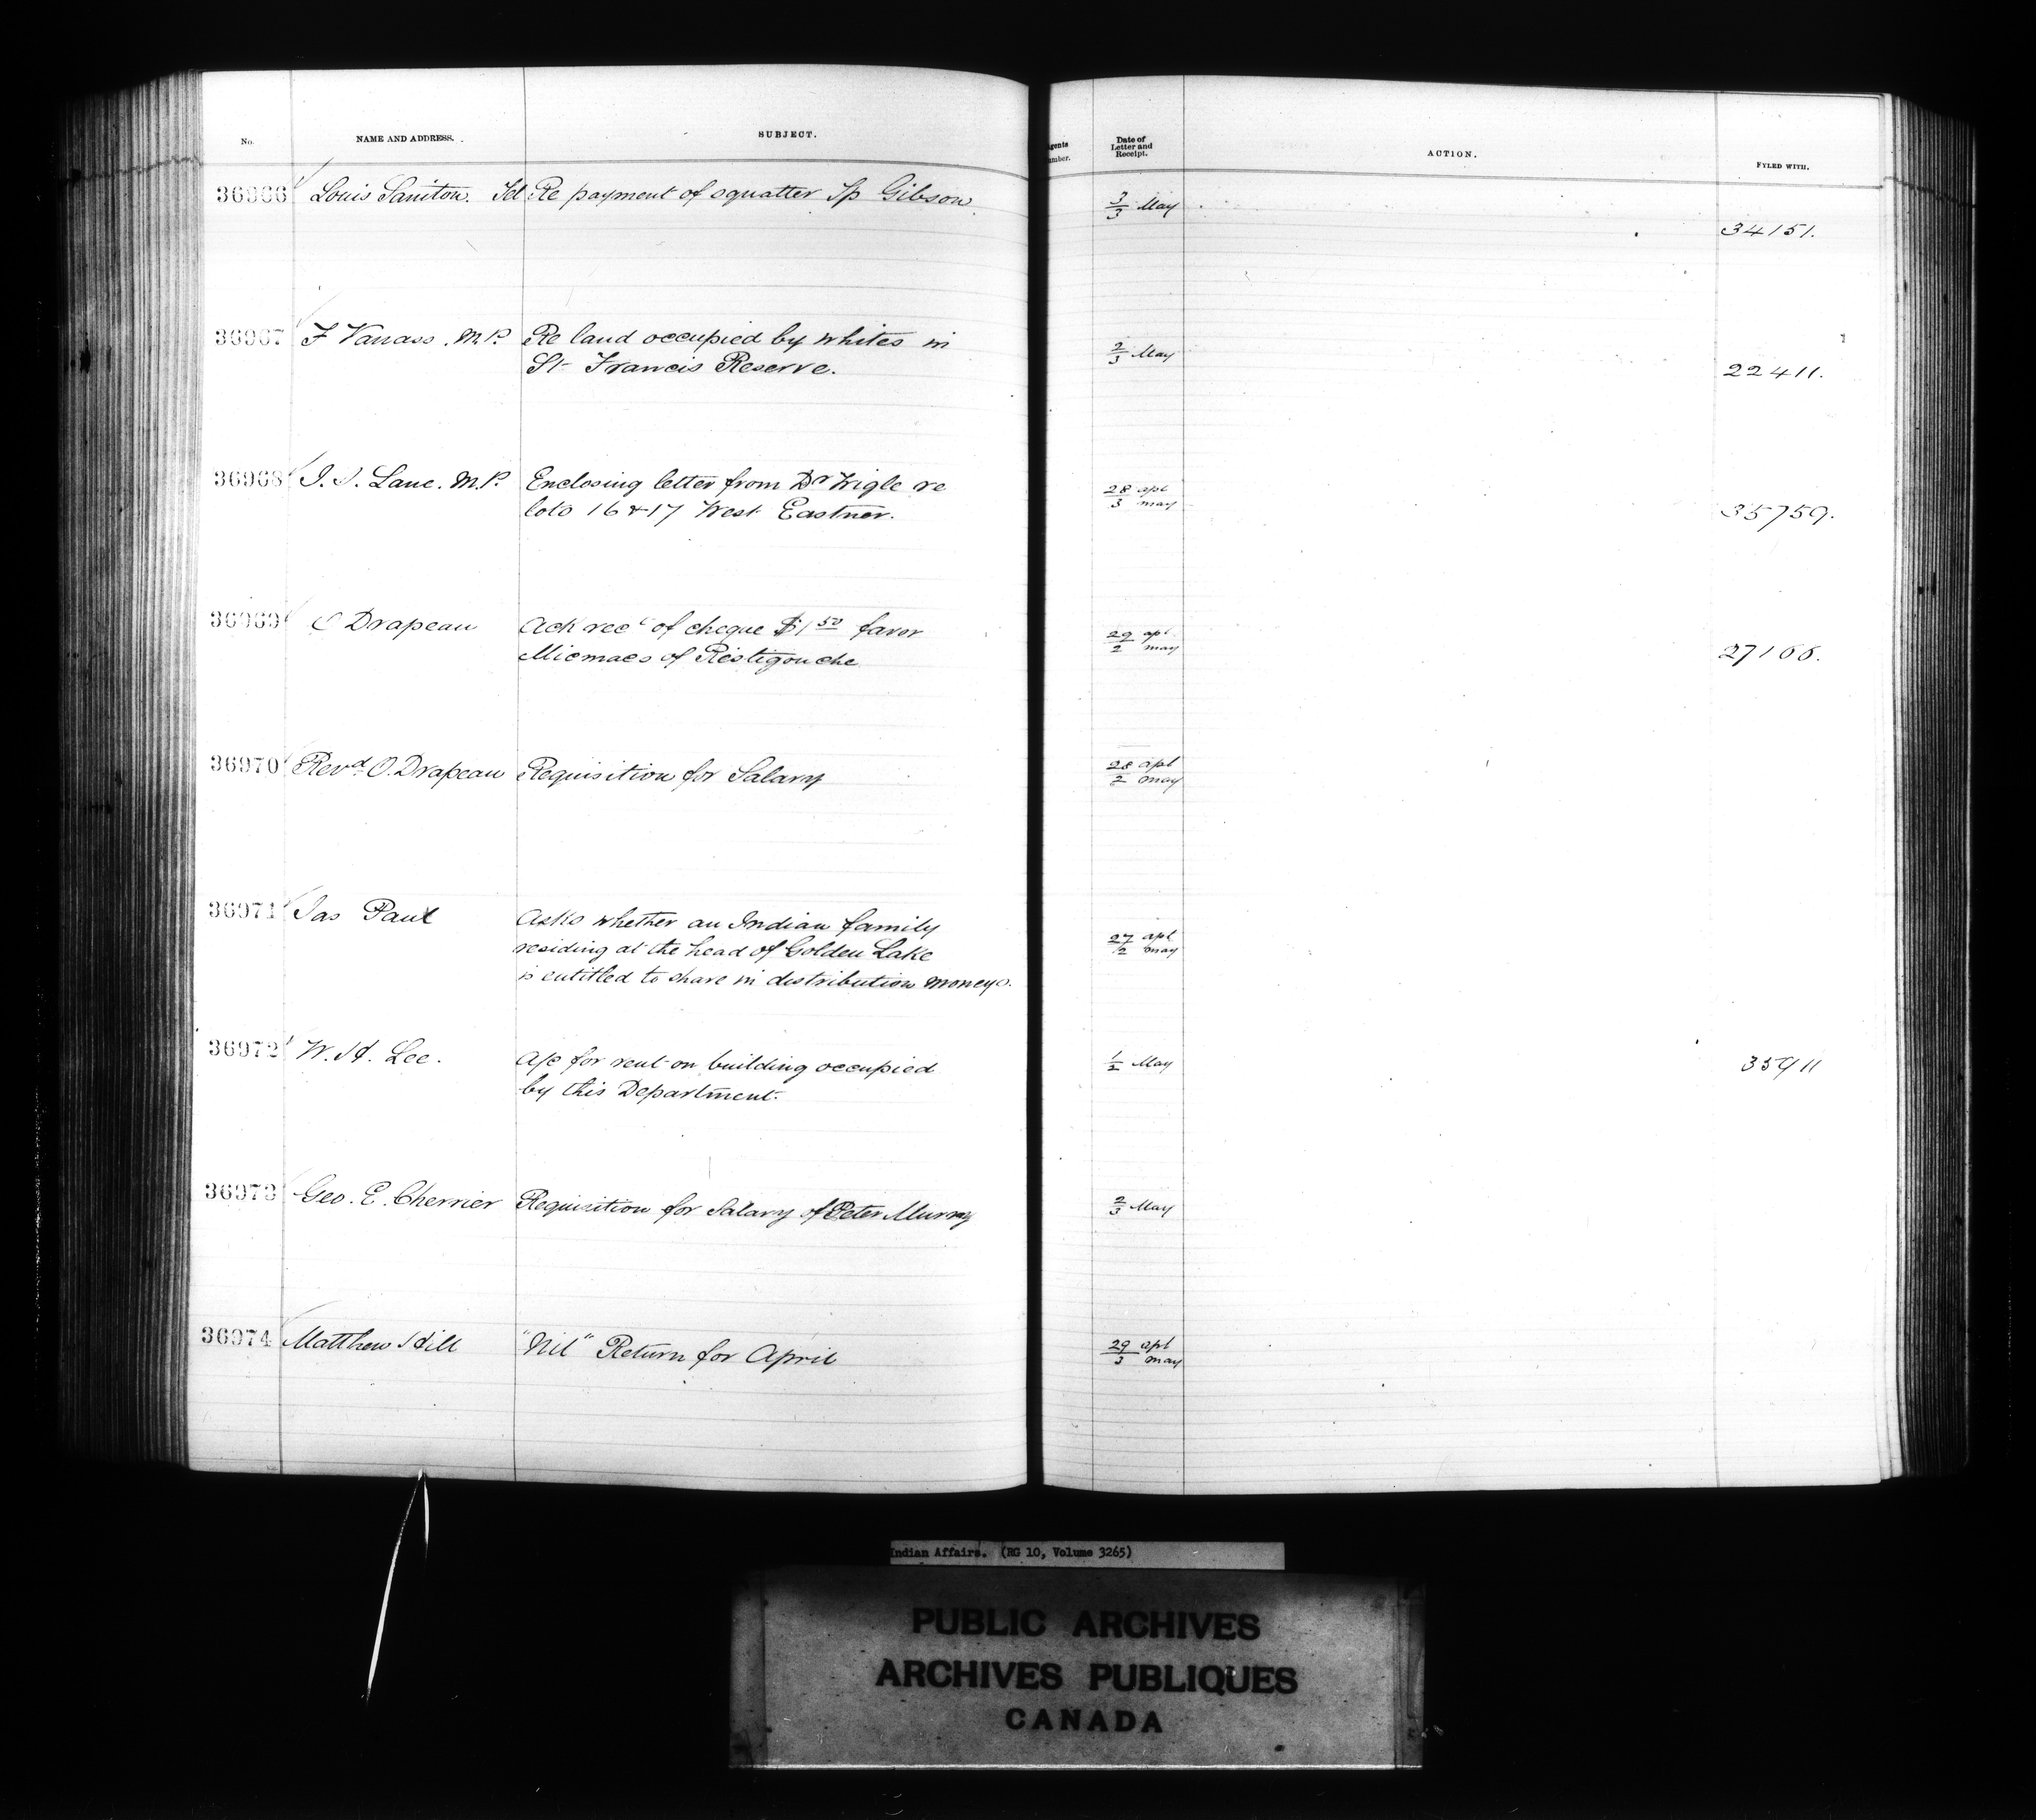 No.
NAME AND ADDRESS.
SUBJECT.
Agents
Number.
Date of
Letter and
Receipt.
ACTION.
FYLED WITH.
36966 Louis Saniton. Tel Re payment of squatter Tp Gibson 3/3 May
34151.
36967 F Vanass. M.P. Re land occupied by whites in 2/3 May
St Francis Reserve. 22411.
36968 Lane. M.P. Enclosing letter from Dr Wigle re 28 apl
lots 16 & 17 West Eastnor. 3 may 35759.
36969 Drapeau Ack rect of cheque $1 50 favor 29 apl
Micmacs of Ristigouche 2 may 27166.
36970 Revd O. Drapeau Requisition for Salary 28 apl
2 may
36971 Jas Paul Asks whether an Indian family
residing at the head of Golden Lake 27 apl
is entitled to share in distribution moneys. 2 may
36972 W. H. Lee. a/c for rent on building occupied 1/2 May 35911
by this Department.
36973 Geo. E. Cherrier Requisition for Salary of Peter Murray 2/3 May
36974 Matthew Hill "Nil" Return for April 29 apl
3 may
Indian Affairs. (RG 10, Volume 3265)
PUBLIC ARCHIVES
ARCHIVES PUBLIQUES
CANADA